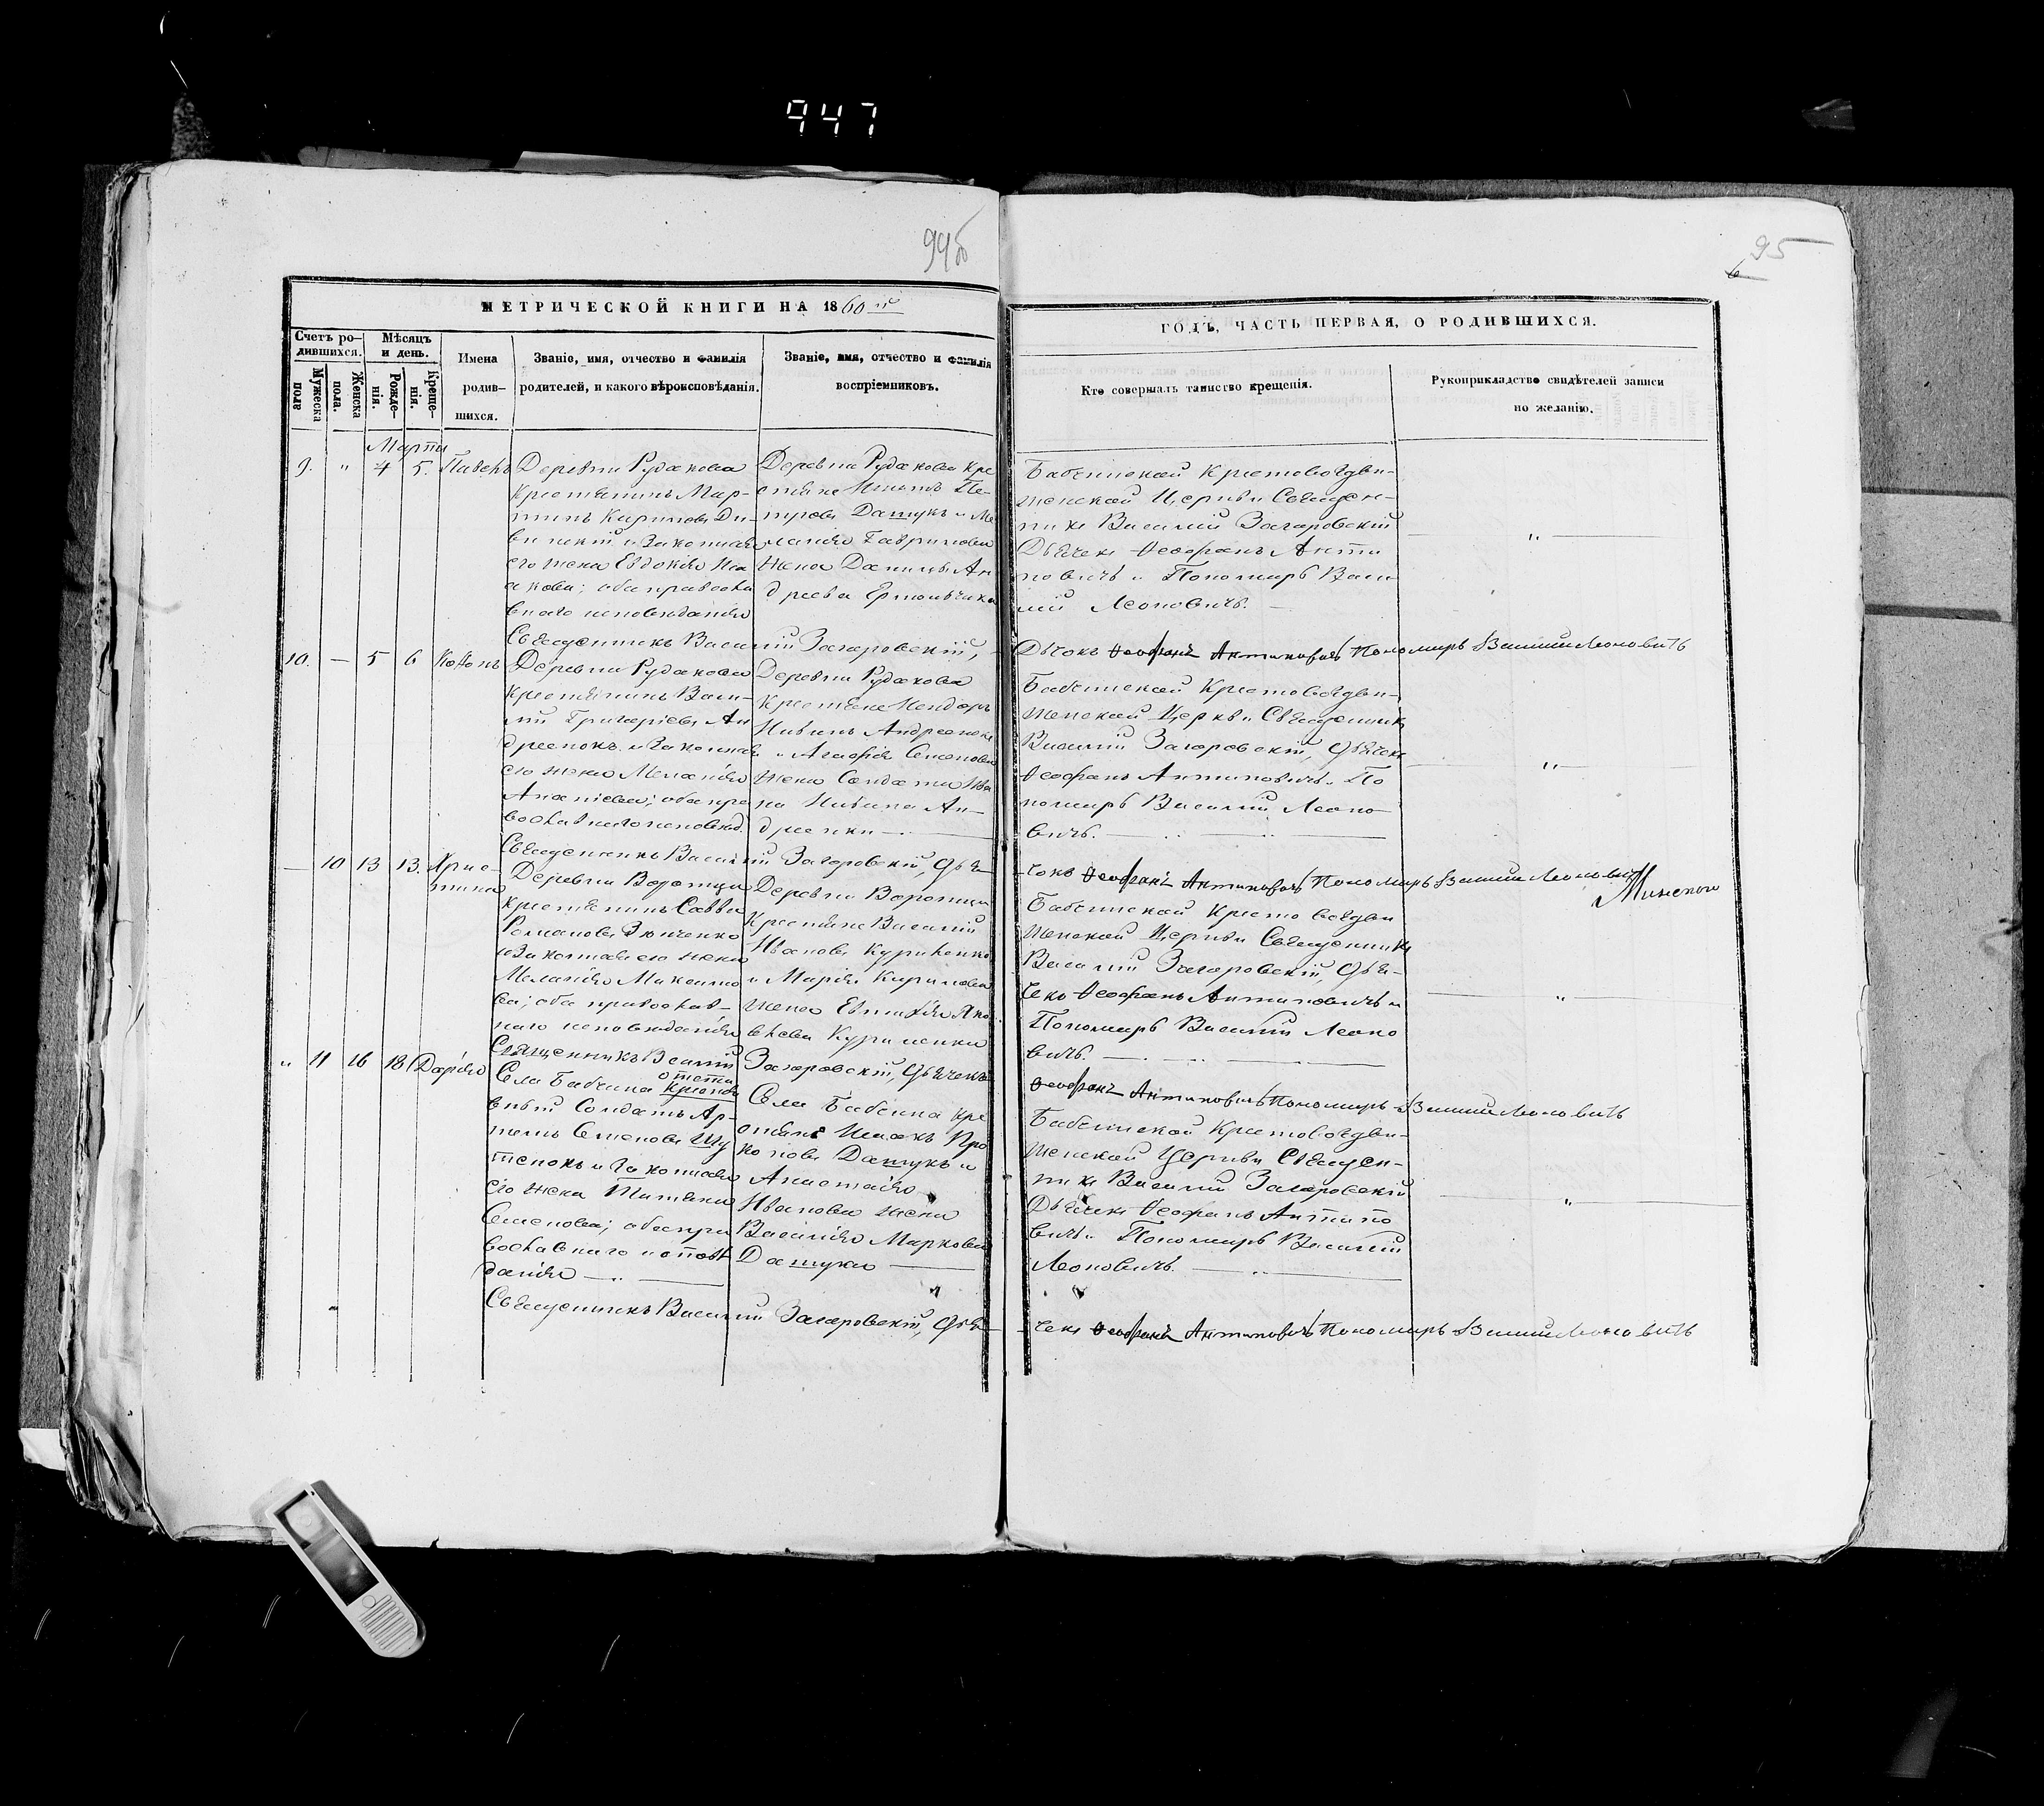 947
94об
95
6
МЕТРИЧЕСКОЙ КНИГИ НА 1860й
ГОДЪ, ЧАСТЬ ПЕРВАЯ, О РОДИВШИХСЯ.
Счетъ ро-
дившихся.
Мужеска
пола
Женска
пола.
Мѣсяцъ
и день.
Рожде-
нія.
Креще-
нія.
Имена
родив-
шихся.
Званіе, имя, отчество и фамилія
родителей, и какого вѣроисповѣданія.
Званіе, имя, отчество и фамилія
воспріемниковъ.
Кто совершалъ таинство крещенія.
Рукоприкладство свидѣтелей записи
по желанію.
Марта
9. " 4 5. Павелъ
Деревни Рудакова
Крестьянинъ Мар-
тинъ Кириловъ
и Законная
его жена Евдокія Иса
акова; оба правосла
внаго исповѣданія
Деревни Рудакова кре
стьяне Игнатъ Пе-
тровъ Дашукъ и Ме
ланія Гаврилова
жена Данилы Ан
дреева Ермольчика
Бабчинской Крестовоздви-
женской Церкви Священ-
никъ Василій Загоровскій
Дьячекъ Ѳеофанъ Анти
повичъ и Пономарь Васи
лій Леоновичъ.
Священникъ Василій Загоровскій, Дьчокъ Ѳеофанъ Антиповичъ Пономарь Василий Леоновичъ
10. — 5 6 Кононъ
Деревни Рудакова
крестьянинъ Васи-
лій Григоріевъ Ан
дреенокъ и Законная
его жена Меланія
Ананіева; оба пра
вославнаго исповѣд.
Деревни Рудакова
Крестьяне
Андреенокъ
и Агафія Семенова
жена Солдата Ива
на Ан-
дреенки
Бабчинской Крестовоздви-
женской Церкви Священникъ
Василій Загоровскій, Дьячекъ
Ѳеофанъ Антиповичъ По
номарь Василій Леоно
вичъ.
Священникъ Василій Загоровскій, Дья-
чокъ Ѳеофанъ Антиповичъ Пономарь Василий Леоновичъ
— 10 13 13. Хрис-
тина
Деревни Воротца
крестьянинъ Савва
Романовъ Зюченко
и Законная его жена
Меланія Максимо
ва; оба православ-
наго исповѣданія
Деревни Воротца
Крестьяне Василій
Ивановъ Куриленко
и Марія Кирилова
жена Евтихія Яко
влева Куриленки
Бабчинской Крестовоздви
женской Церкви Священникъ
Василій Загоровскій, Дья-
чекъ Ѳеофанъ Антиповичъ и
Пономарь Василій Леоно
вичъ.
Священникъ Василій Загоровскій, Дьячекъ
Ѳеофанъ Антиповичъ Пономарь Василий Леоновичъ
" 11 16 18 Дарія
Села Бабчина
Солдатъ Ар-
темъ Семеновъ
и Законная
его жена Татьяна
Семенова; оба пра
вославнаго исповѣ
данія
Села Бабчина кре
стьяне Исаакъ Про
коповъ Дашукъ и
Анастасія
Иванова жена
Василія Маркова
Дашука
Бабчинской Крестовоздви-
женской Церкви Священ-
никъ Василій Загоровскій
Дьячекъ Ѳеофанъ Антипо
вичъ и Пономарь Василій
Леоновичъ.
Священникъ Василій Загоровскій, Дья-
чекъ Ѳеофанъ Антиповичъ Пономарь Василий Леоновичъ